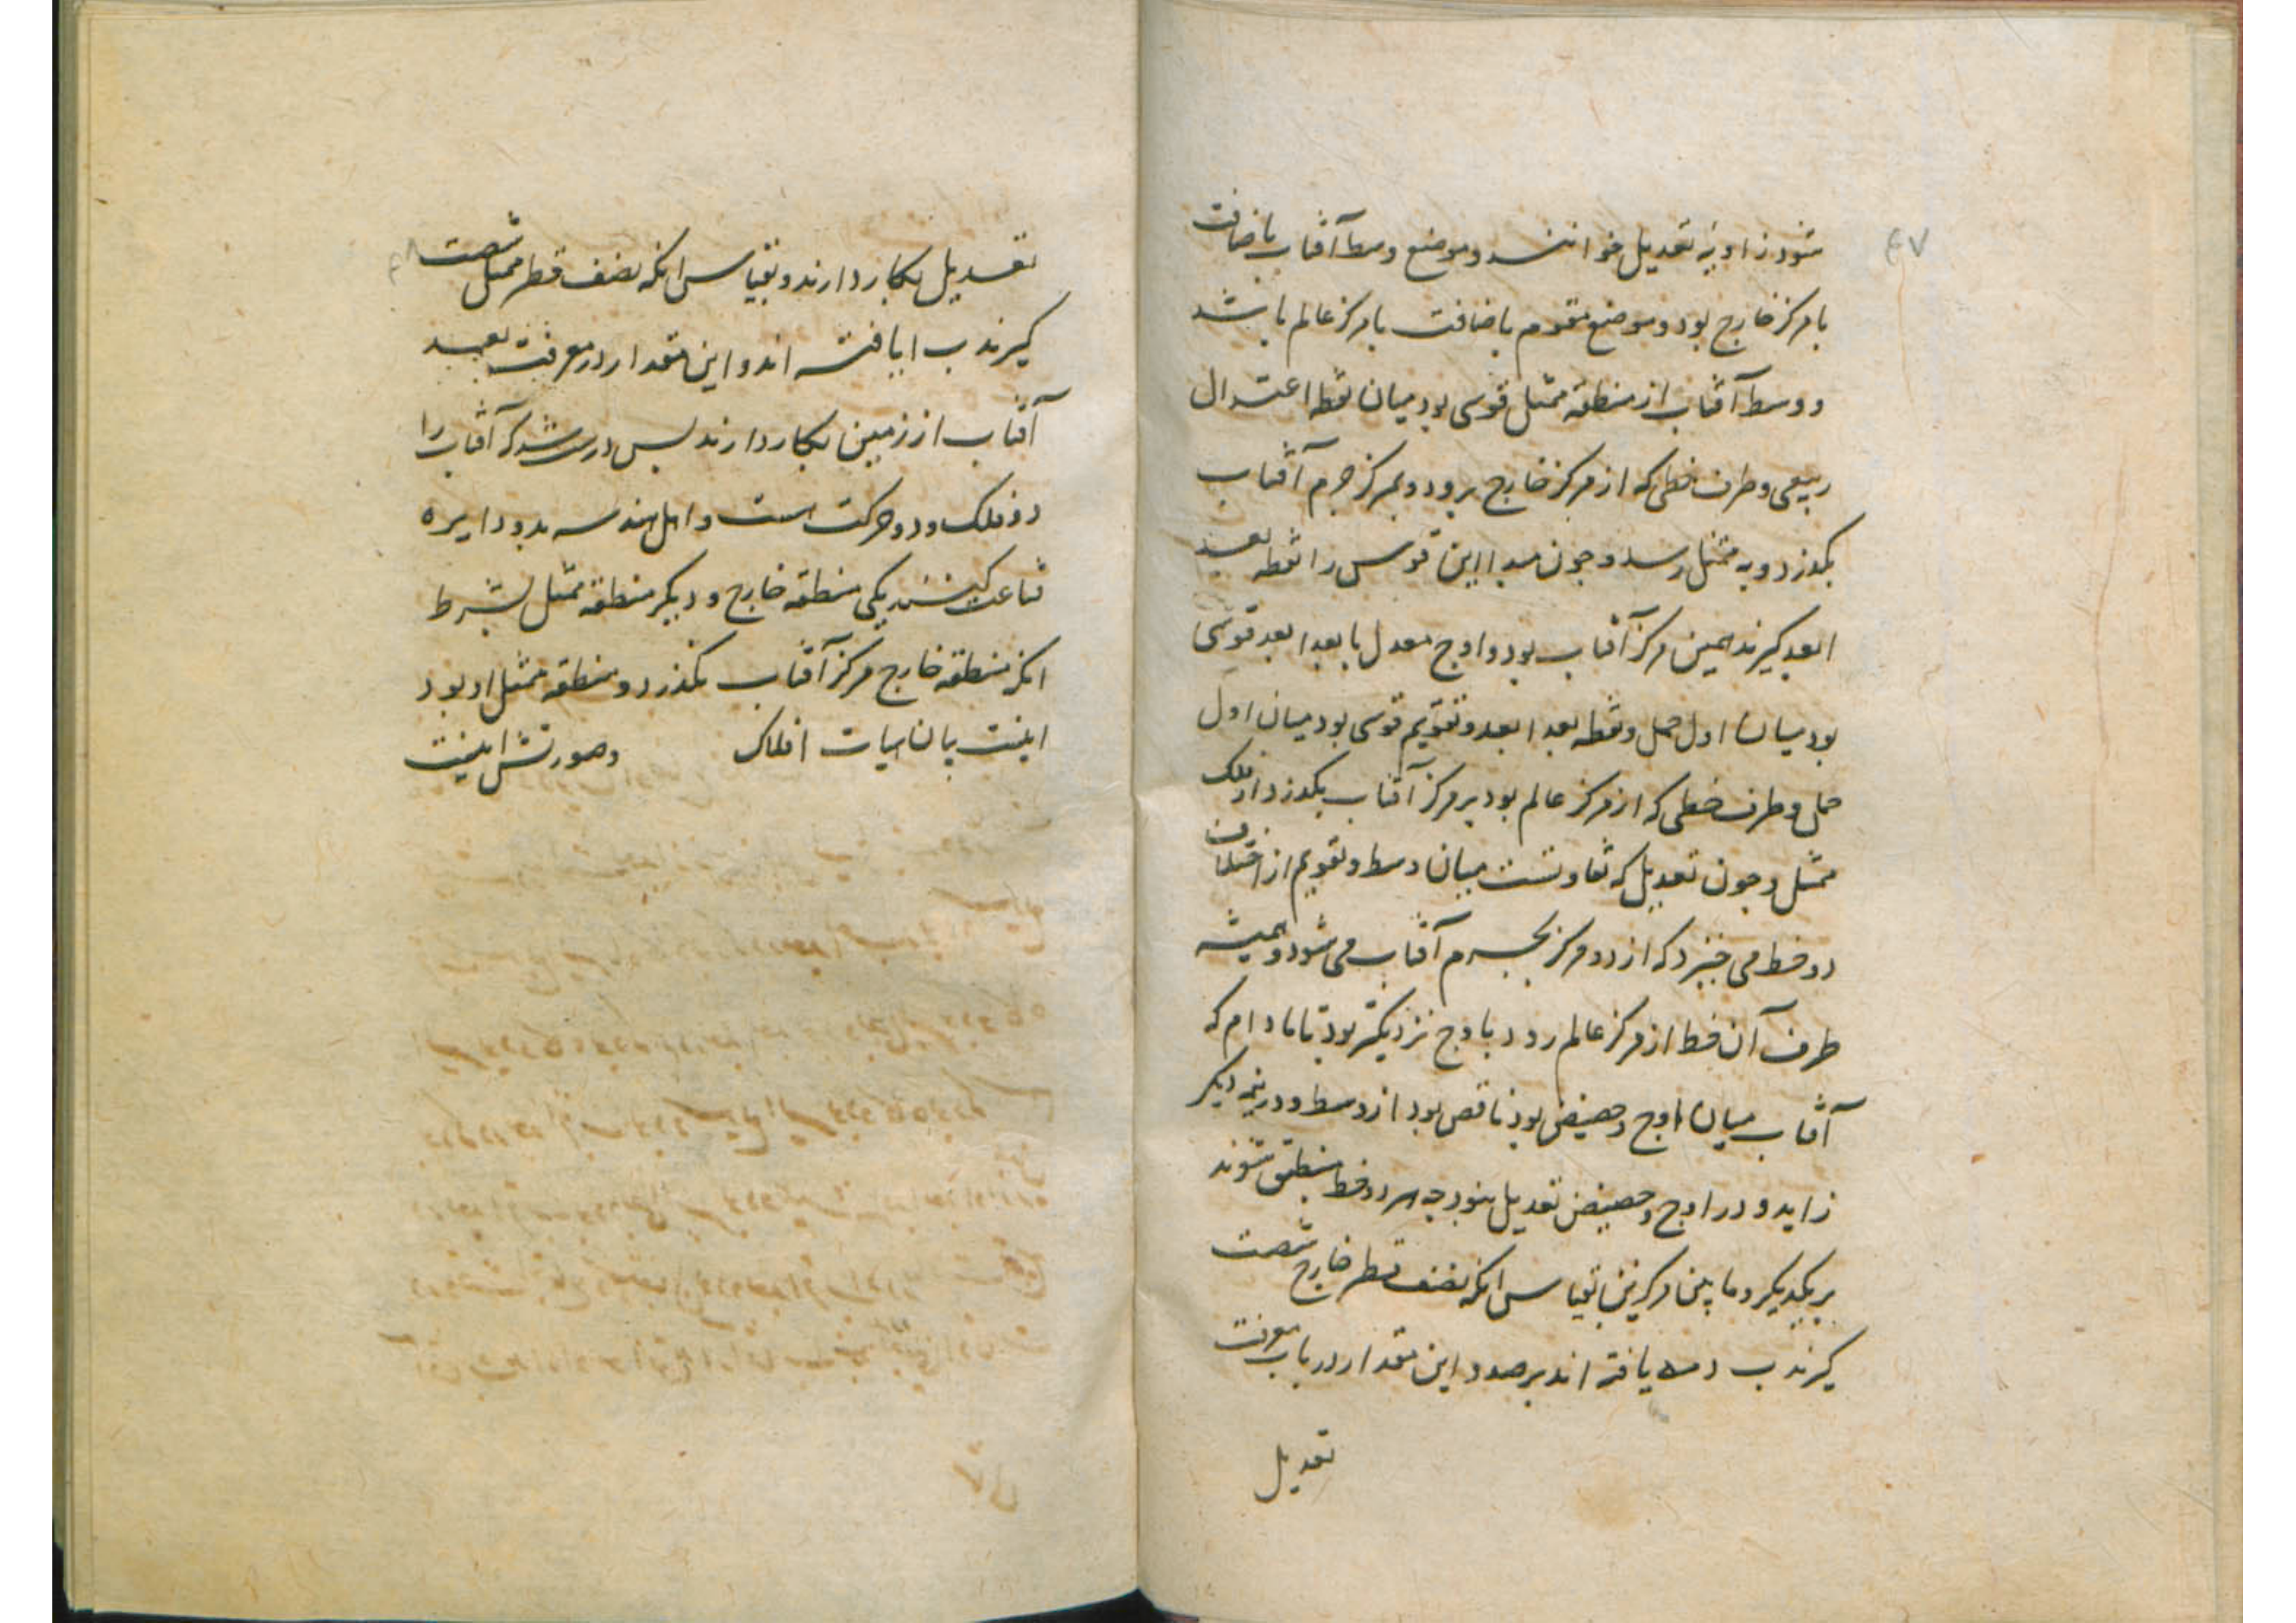 ۴۷
شود زاویهٔ تعدیل خوانند و موضع وسط آفتاب باضافت
با مرکز خارج بود و موضع مقوم باضافت با مرکز عالم باشد
و وسط آفتاب از منطقهٔ ممثل قوسی بود میان نقطه اعتدال
ربیعی و طرف خطی که از مرکز خارج برود و بمرکز جرم آفتاب
بکذرد و به ممثل رسد و جون مبدا این قوس را نقطه بعد
ابعد کیرند همین مرکز آفتاب بود و اوج معدل یا بعد ابعد قوسی
بود میان اول حمل و نقطه بعد ابعد و تقویم قوسی بود میان اول
حمل و طرف خطی که از مرکز عالم بود بر مرکز آفتاب بکذرد از فلک
ممثل و جون تعدیل که تفاوتست میان وسط و تقویم از اختلاف
دو خط می خیزد که از دو مرکز بجرم آفتاب می شود و همیشه
طرف آن خط از مرکز عالم رود باوج نزدیکتر بود تا مادام که
آفتاب میان اوج و حضیض بود ناقص بود از وسط و در نیمه دیکر
زاید و در اوج و حضیض تعدیل نبود جه هر دو خط منطبق شوند
بر یکدیکر و ما بین مرکزین بقیاس انکه نصف قطر خارج شصت
کیرند ب یافته اند برصد و این مقدار در باب معرفت
تعدیل
تعدیل بکار دارند و بقیاس انکه نصف قطر ممثل شصت
کیرند ب ا یافته اند و این مقدار در معرفت بعد
آفتاب از زمین بکار دارند بس درست شد که آفتاب را
دو فلک و دو حرکت است و اهل هندسه بدو دایره
قناعت کنند یکی منطقه خارج و دیکر منطقه ممثل بشرط
انکه منطقه خارج مرکز آفتاب بکذرد و منطقه ممثل او بود
اینست بیان هیات افلاک و صورتش اینست